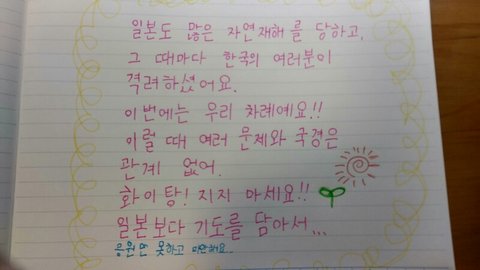 일본도 많은 자연재해를 당하고,
그 때마다 한국의 여러분이
격려하셨어요.
이번에는 우리 차례예요!!
이럴 때 여러 문제와 국경은
관계 없어.
화이탕! 지지 마세요!!
일본보다 기도를 담아서...
응원만 못하고 미안해요..